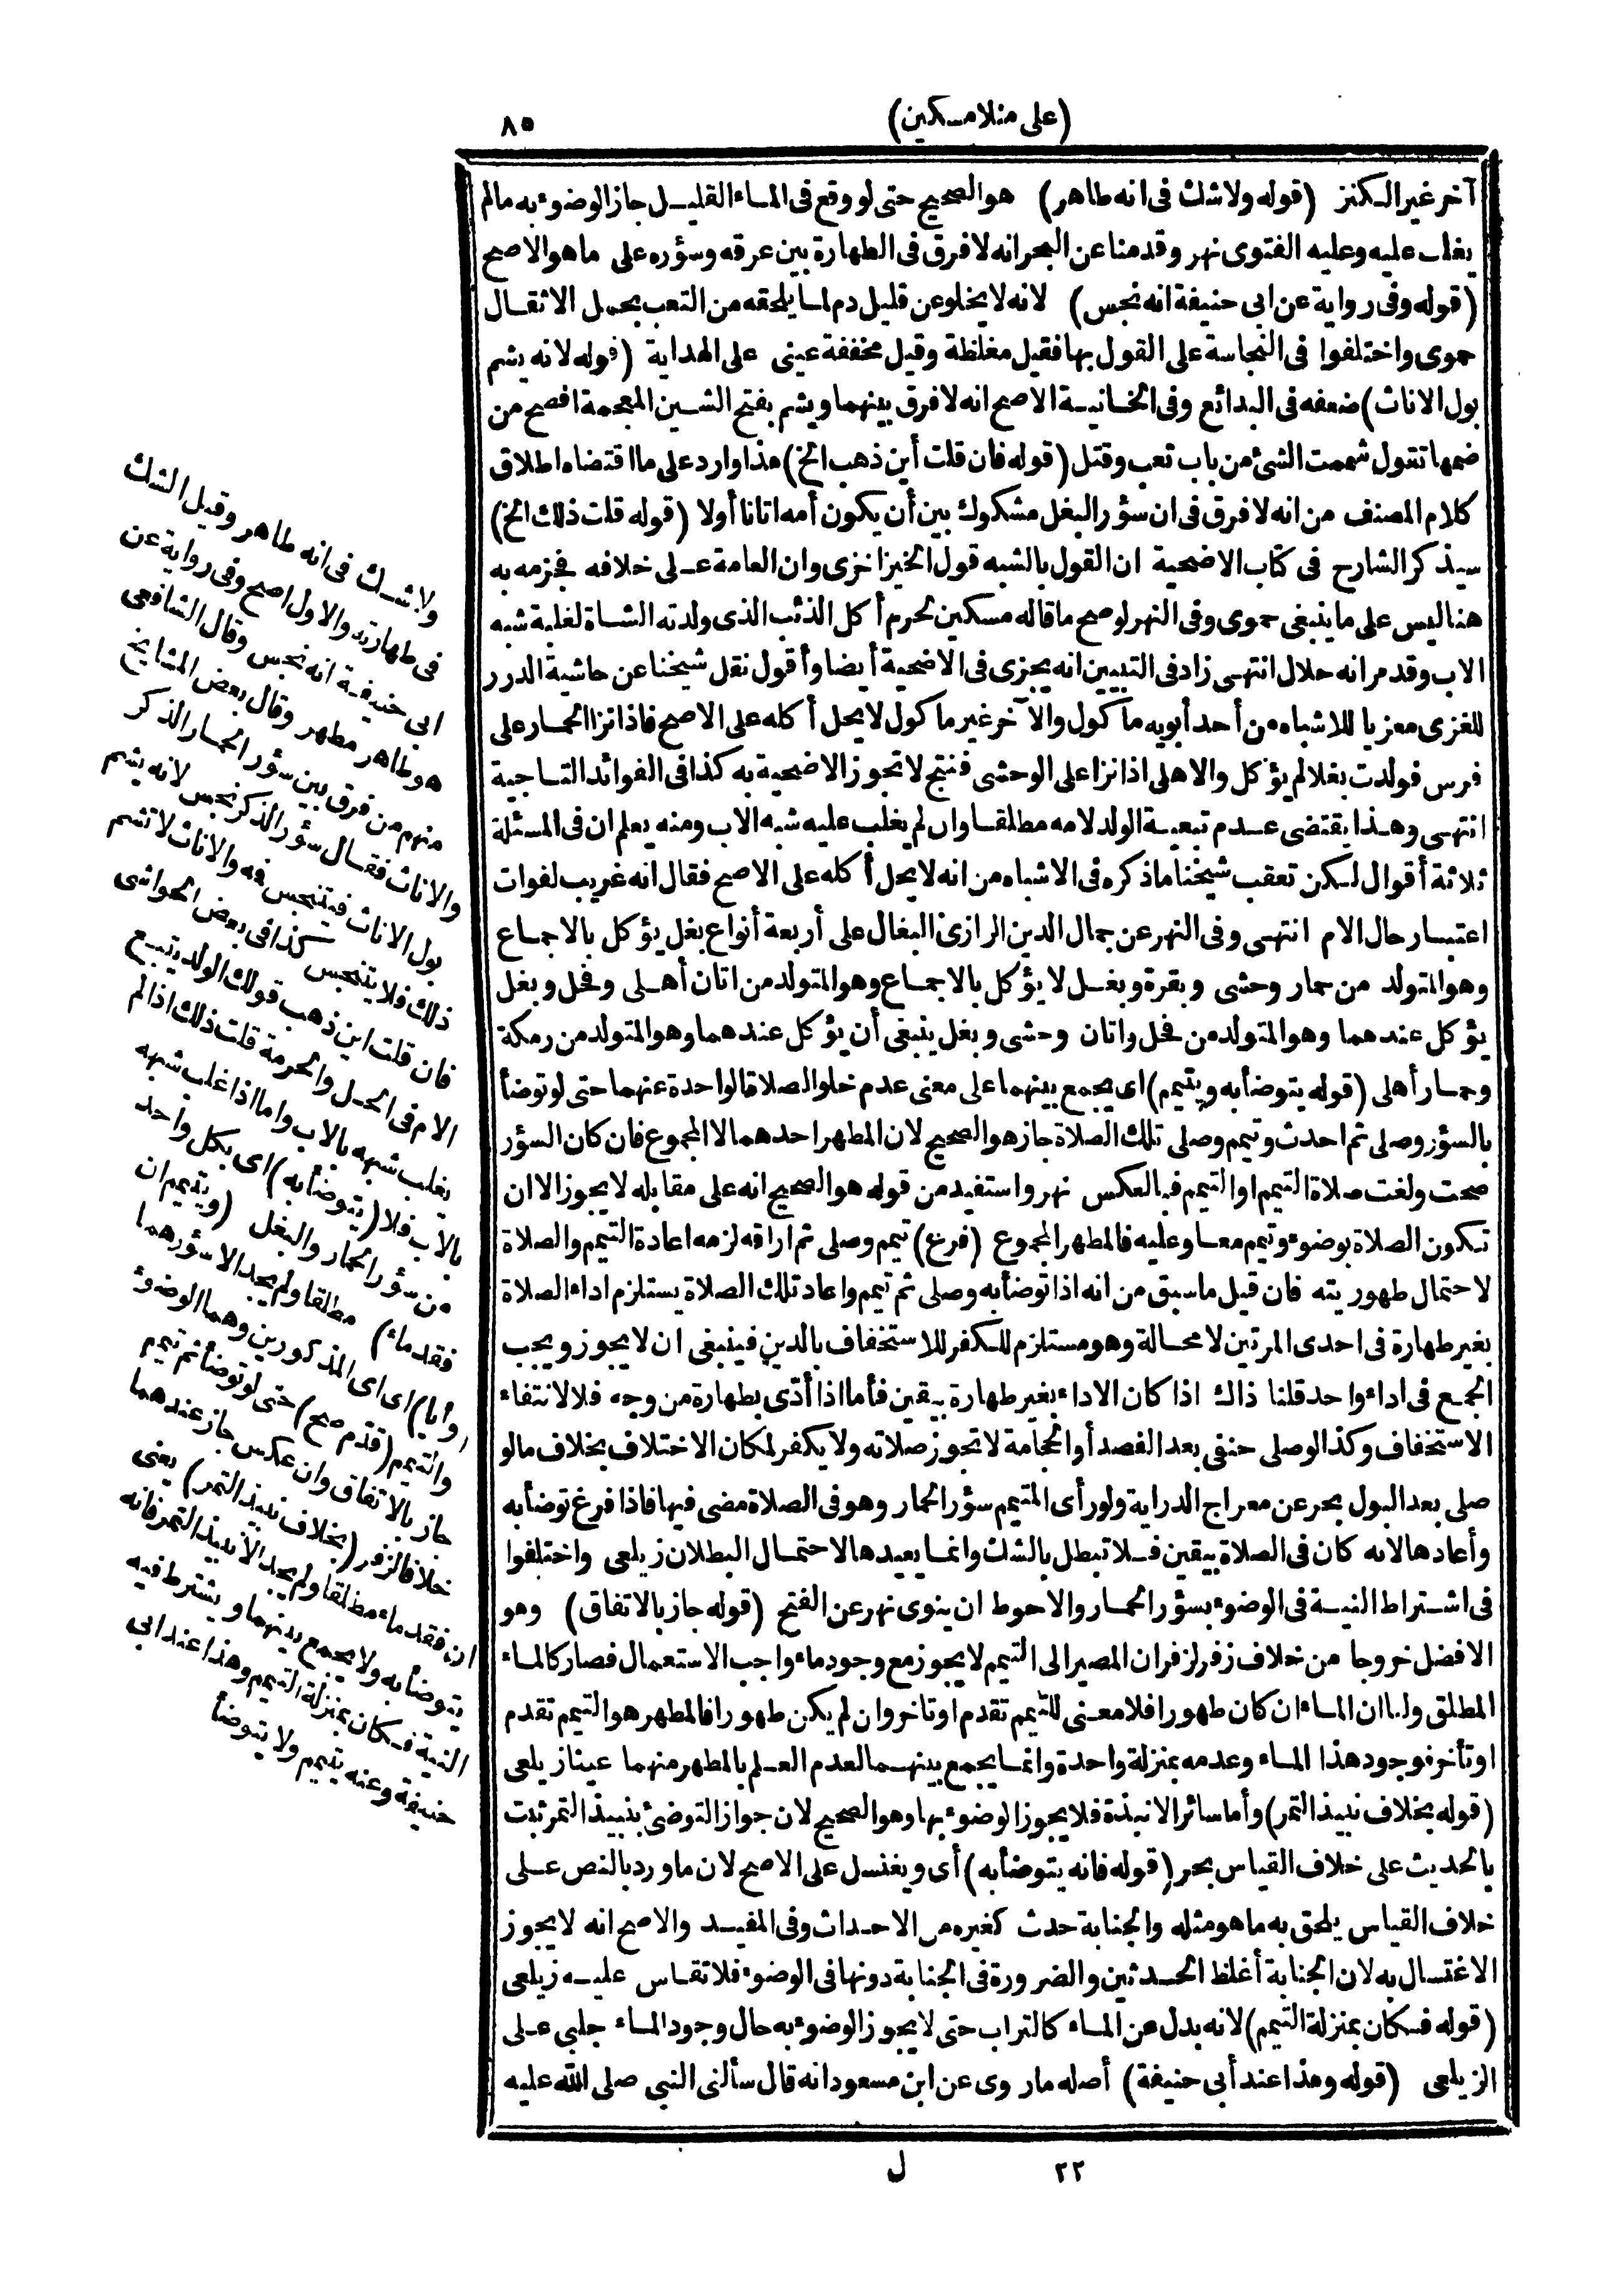 (على منلا مسكين)
٨٥
آخر غير الكنز (قوله ولا شك فى انه طاهر) هو الصحيح حتى لو وقع فى الماء القليل جاز الوضوء به مالم
يغلب عليه وعليه الفتوى نهر وقدمنا عن البحر انه لا فرق فى الطهارة بين عرقه وسؤره على ما هو الاصح
(قوله وفى رواية عن ابى حنيفة انه نجس) لانه لا يخلو عن قليل دم لما يلحقه من التعب بحمل الاثقال
حموى واختلفوا فى النجاسة على القول بها فقيل مغلظة وقيل مخففة عينى على الهداية (قوله لانه يشم
بول الاناث) ضعفه فى البدائع وفى الخانية الاصح انه لا فرق بينهما ويشم بفتح الشين المعجمة افصح من
ضمها تقول شممت الشئ من باب تعب وقتل (قوله فان قلت أين ذهب الخ) هذا وارد على ما اقتضاه اطلاق
كلام المصنف من انه لا فرق فى ان سؤر البغل مشكوك بين أن يكون أمه اتانا أولا (قوله قلت ذلك الخ)
سيذكر الشارح فى كتاب الاضحية ان القول بالشبه قول الخيزاخزى وان العامة على خلافه فجزمه به
هنا ليس على ما ينبغى حموى وفى النهر لو صح ما قاله مسكين لحرم أكل الذئب الذى ولدته الشاة لغلبة شبه
الاب وقد مر انه حلال انتهى زاد فى التبيين انه يجزى فى الاضحية أيضا وأقول نقل شيخنا عن حاشية الدرر
للغزى معزيا للاشباه من أحد أبويه مأكول والآخر غير مأكول لا يحل أكله على الاصح فاذا نزا الحمار على
فرس فولدت بغلا لم يؤكل والاهلى اذا نزا على الوحشى فنتج لا تجوز الاضحية به كذا فى الفوائد التاجية
انتهى وهذا يقتضى عدم تبعية الولد لامه مطلقا وان لم يغلب عليه شبه الاب ومنه يعلم ان فى المسئلة
ثلاثة أقوال لكن تعقب شيخنا ما ذكره فى الاشباه من انه لا يحل أكله على الاصح فقال انه غريب لفوات
اعتبار حال الام انتهى وفى النهر عن جمال الدين الرازى البغال على أربعة أنواع بغل يؤكل بالاجماع
وهو المتولد من حمار وحشى وبقرة وبغل لا يؤكل بالاجماع وهو المتولد من اتان أهلى وفحل وبغل
يؤكل عندهما وهو المتولد من فحل واتان وحشى وبغل ينبغى أن يؤكل عندهما وهو المتولد من رمكة
وحمار أهلى (قوله يتوضأ به ويتيمم) اى يجمع بينهما على معنى عدم خلو الصلاة الواحدة عنهما حتى لو توضأ
بالسؤر وصلى ثم احدث وتيمم وصلى تلك الصلاة جاز هو الصحيح لان المطهر احدهما لا المجموع فان كان السؤر
صحت ولغت صلاة التيمم او التيمم فبالعكس نهر واستفيد من قوله هو الصحيح انه على مقابله لا يجوز الا ان
تكون الصلاة بوضوء وتيمم معا وعليه فالمطهر المجموع (فرع) تيمم وصلى ثم اراقه لزمه اعادة التيمم والصلاة
لاحتمال طهوريته فان قيل ما سبق من انه اذا توضأ به وصلى ثم تيمم واعاد تلك الصلاة يستلزم اداء الصلاة
بغير طهارة فى احدى المرتين لا محالة وهو مستلزم للكفر للاستخفاف بالدين فينبغى ان لا يجوز ويجب
الجمع فى اداء واحد قلنا ذاك اذا كان الاداء بغير طهارة بيقين فأما اذا أدّى بطهارة من وجه فلا لانتفاء
الاستخفاف وكذا لو صلى حنفى بعد الفصد أو الحجامة لا تجوز صلاته ولا يكفر لمكان الاختلاف بخلاف مالو
صلى بعد البول بحر عن معراج الدراية ولو رأى المتيمم سؤر الحمار وهو فى الصلاة مضى فيها فاذا فرغ توضأ به
وأعادها لانه كان فى الصلاة بيقين فلا تبطل بالشك وانما يعيدها لاحتمال البطلان زيلعى واختلفوا
فى اشتراط النية فى الوضوء بسؤر الحمار والاحوط ان ينوى نهر عن الفتح (قوله جاز بالاتفاق) وهو
الافضل خروجا من خلاف زفر لزفر ان المصير الى التيمم لا يجوز مع وجود ماء واجب الاستعمال فصار كالماء
المطلق ولنا ان الماء ان كان طهورا فلا معنى للتيمم تقدم او تاخر وان لم يكن طهورا فالمطهر هو التيمم تقدم
او تأخر فوجود هذا الماء وعدمه بمنزلة واحدة وانما يجمع بينهما لعدم العلم بالمطهر منهما عينا زيلعى
(قوله بخلاف نبيذ التمر) وأما سائر الانبذة فلا يجوز الوضوء بها وهو الصحيح لان جواز التوضئ بنبيذ التمر ثبت
بالحديث على خلاف القياس بحر (قوله فانه يتوضأ به) أى ويغتسل على الاصح لان ماورد بالنص على
خلاف القياس يلحق به ما هو مثله والجنابة حدث كغيره من الاحداث وفى المفيد والاصح انه لا يجوز
الاغتسال به لان الجنابة أغلظ الحدثين والضرورة فى الجنابة دونها فى الوضوء فلا تقاس عليه زيلعى
(قوله فكان بمنزلة التيمم) لانه بدل عن الماء كالتراب حتى لا يجوز الوضوء به حال وجود الماء جلبى على
الزيلعى (قوله وهذا عند أبى حنيفة) أصله ماروى عن ابن مسعود انه قال سألنى النبى صلى الله عليه
ولا شك فى انه طاهر وقيل الشك
فى طهارته والاول اصح وفى رواية عن
ابى حنيفة انه نجس وقال الشافعى
هو طاهر مطهر وقال بعض المشايخ
منهم من فرق بين سؤر الحمار الذكر
والاناث فقال سؤر الذكر نجس لانه يشم
بول الاناث فيتنجس فه والاناث لا تشم
ذلك فلا يتنجس كذا فى بعض الحواشى
فان قلت اين ذهب قولك الولد يتبع
الام فى الحل والحرمة قلت ذلك اذا لم
يغلب شبهه بالاب واما اذا غلب شبهه
بالاب فلا (يتوضأ به) اى بكل واحد
من سؤر الحمار والبغل (ويتيمم ان
فقد ماء) مطلقا ولم يجد الا سؤرهما
(وأيا) اى اى المذكورين وهما الوضوء
والتيمم (قدم صح) حتى لو توضأ ثم تيمم
جاز بالاتفاق وان عكس جاز عندهما
خلافا لزفر (بخلاف نبيذ التمر) يعنى
ان فقد ماء مطلقا ولم يجد الا نبيذ التمر فانه
يتوضأ به ولا يجمع بينهما ويشترط فيه
النية فكان بمنزلة التيمم وهذا عند ابى
حنيفة وعنه يتيمم ولا يتوضأ
٢٢
ل